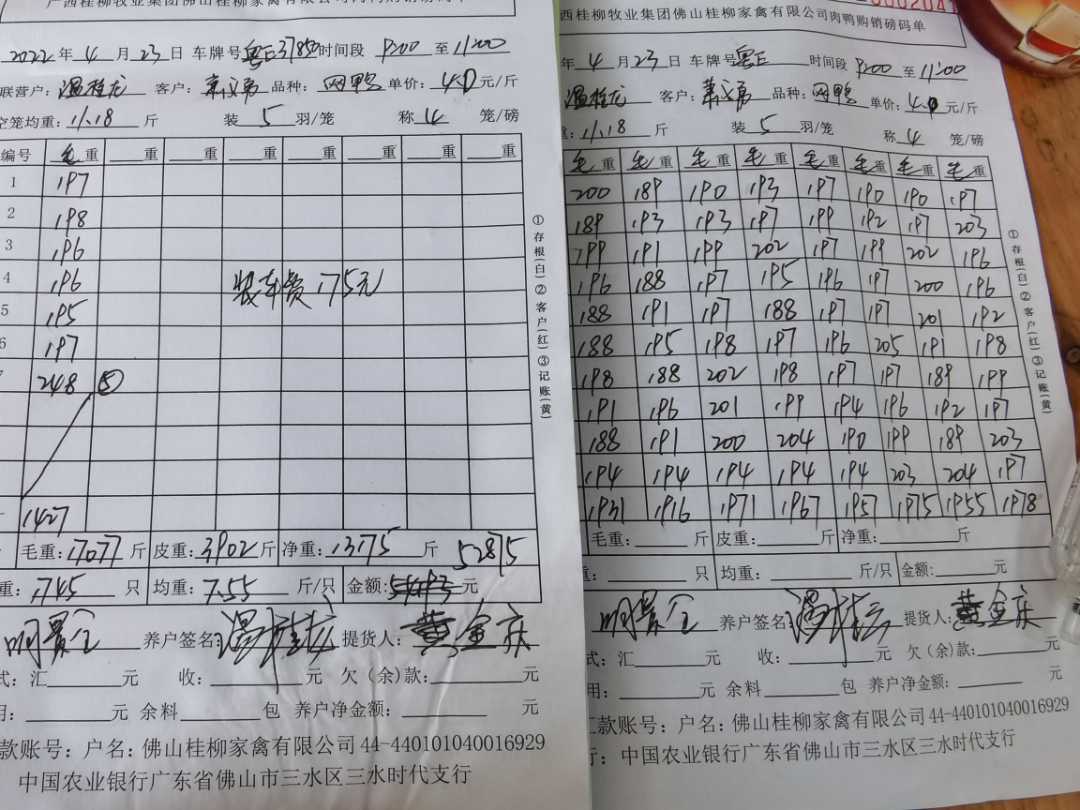 广西桂柳牧业集团佛山桂柳家禽有限公司肉鸭购销磅码单
2022年4月23日 车牌号粤E37850时间段 9:00 至 11:00
联营户: 客户: 品种: 单价: 4.0元/斤
空笼均重: 11.18 斤 装 5 羽/笼 称 4 笼/磅
编号 毛重 重 重 重 重 重 重 重
1 197
2 198
3 196
4 196 装车费175元
5 195
6 197
7 248 ⑤
1427
毛重: 17077斤 皮重: 3902斤 净重: 13175 斤 52875
重: 1745 只 均重: 7.55 斤/只 金额: 元
养户签名: 提货人: 黄金庆
式: 汇 元 收: 元 欠(余)款: 元
用: 元 余料 包 养户净金额: 元
款账号: 户名: 佛山桂柳家禽有限公司 44-440101040016929
中国农业银行广东省佛山市三水区三水时代支行
①存根(白)②客户(红)③记账(黄)
西桂柳牧业集团佛山桂柳家禽有限公司肉鸭购销磅码单
年4月23日 车牌号粤E 时间段 9:00 至 11:00
客户: 品种: 单价: 4.0元/斤
重: 11.18 斤 装 5 羽/笼 称 4 笼/磅
毛重 毛重 毛重 毛重 毛重 毛重 毛重 毛重
200 189 190 193 197 190 190 197
189 193 193 197 199 192 197 203
199 191 199 202 197 199 202 196
196 188 197 195 196 197 200 196
188 191 197 188 197 197 201 192
188 195 198 197 196 205 191 198
198 188 202 198 197 197 189 199
191 196 201 199 194 196 192 197
188 191 200 204 190 199 189 203
194 194 194 194 194 203 204 197
1931 1916 1971 1967 1957 1975 1955 1978
毛重: 斤 皮重: 斤 净重: 斤
重: 只 均重: 斤/只 金额: 元
养户签名: 提货人: 黄金庆
式: 汇 元 收: 元 欠(余)款: 元
用: 元 余料 包 养户净金额: 元
汇款账号: 户名: 佛山桂柳家禽有限公司 44-440101040016929
行: 中国农业银行广东省佛山市三水区三水时代支行
①存根(白)②客户(红)③记账(黄)